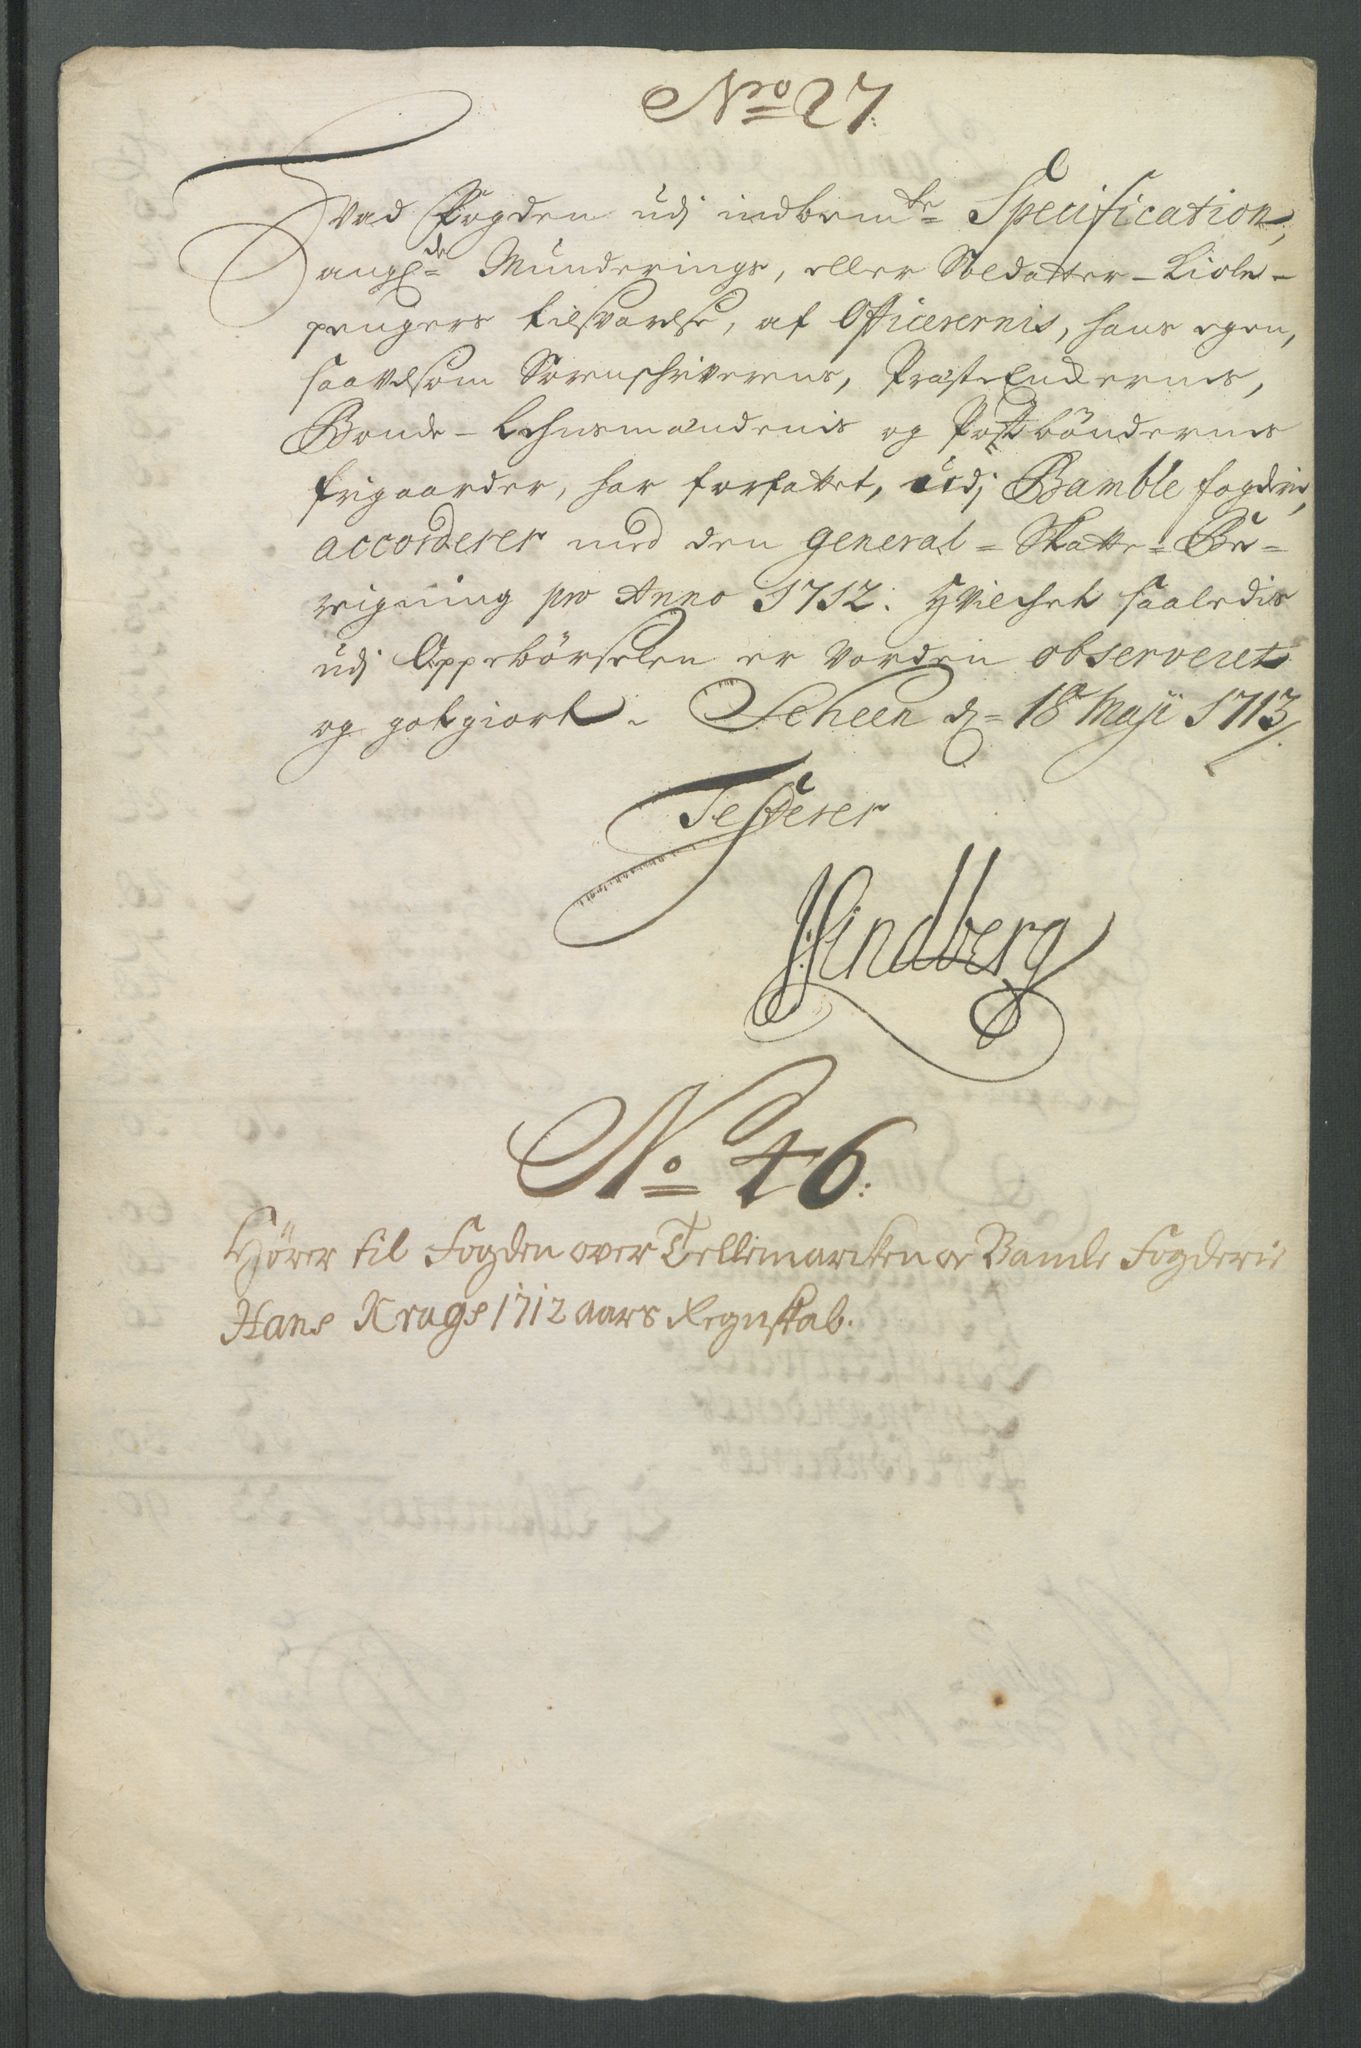 No 27.
Hvad Fogden udj indbem.te Specification,
ang.de Munderings, eller Soldatter-Kiole-
pengers tilsvarelse, af Officerernis, hans egen,
saavelsom Sorenschriverens, Præste Enckernes,
Bonde-Lehnsmændenis og Postbøndernis
frigaarder, har forfattet, udj Bamble fogderie,
accorderer med den general-Skatte-Be-
reigning pro Anno 1712. Hvilchet saaledis
udj Oppebörselen er vorden observeret
og gotgiort. Scheen d. 18 Maji 1713.
Testerer
HLindberg
No 46:
Hører til Fogden over Tellemarcken oc Bamle Fogderie
Hans Krags 1712 aars Regnskab.